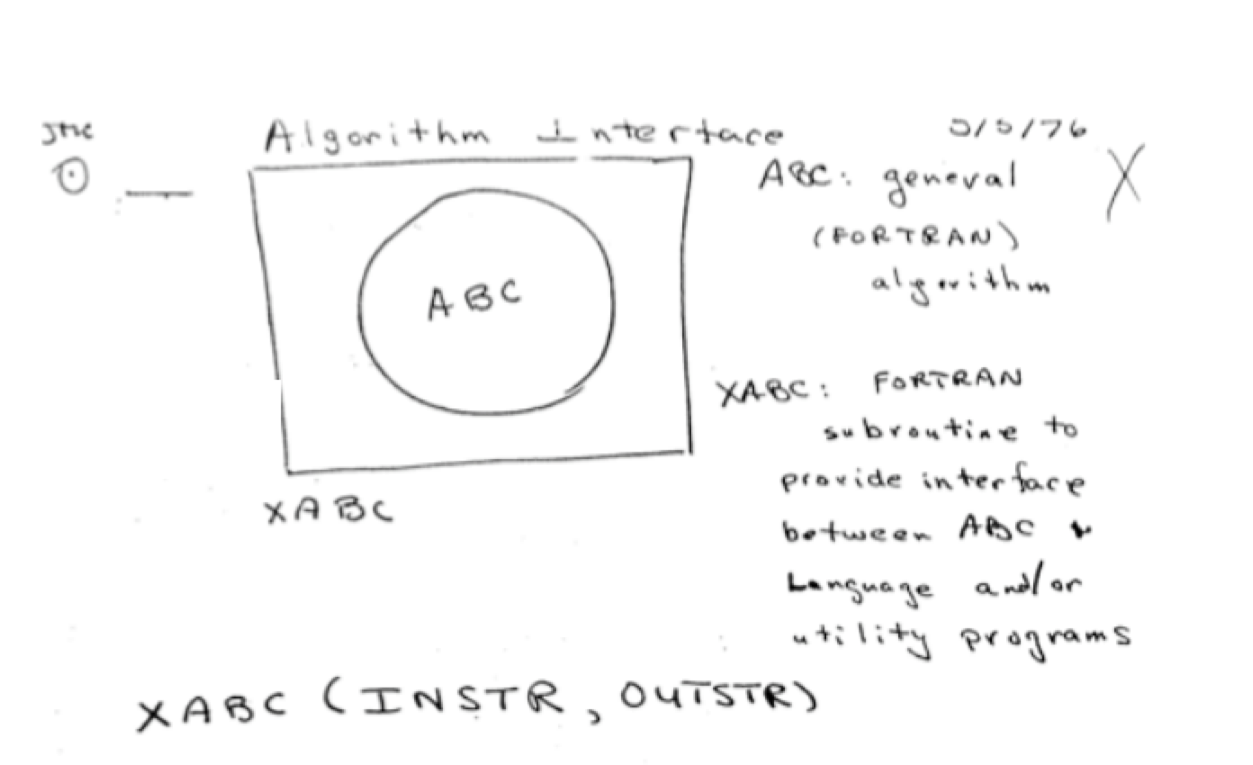 JMC
Algorithm Interface 5/5/76
ABC: general
(FORTRAN)
algorithm
X
ABC
XABC: FORTRAN
subroutine to
provide interface
between ABC &
Language and/or
utility programs
XABC
XABC (INSTR, OUTSTR)